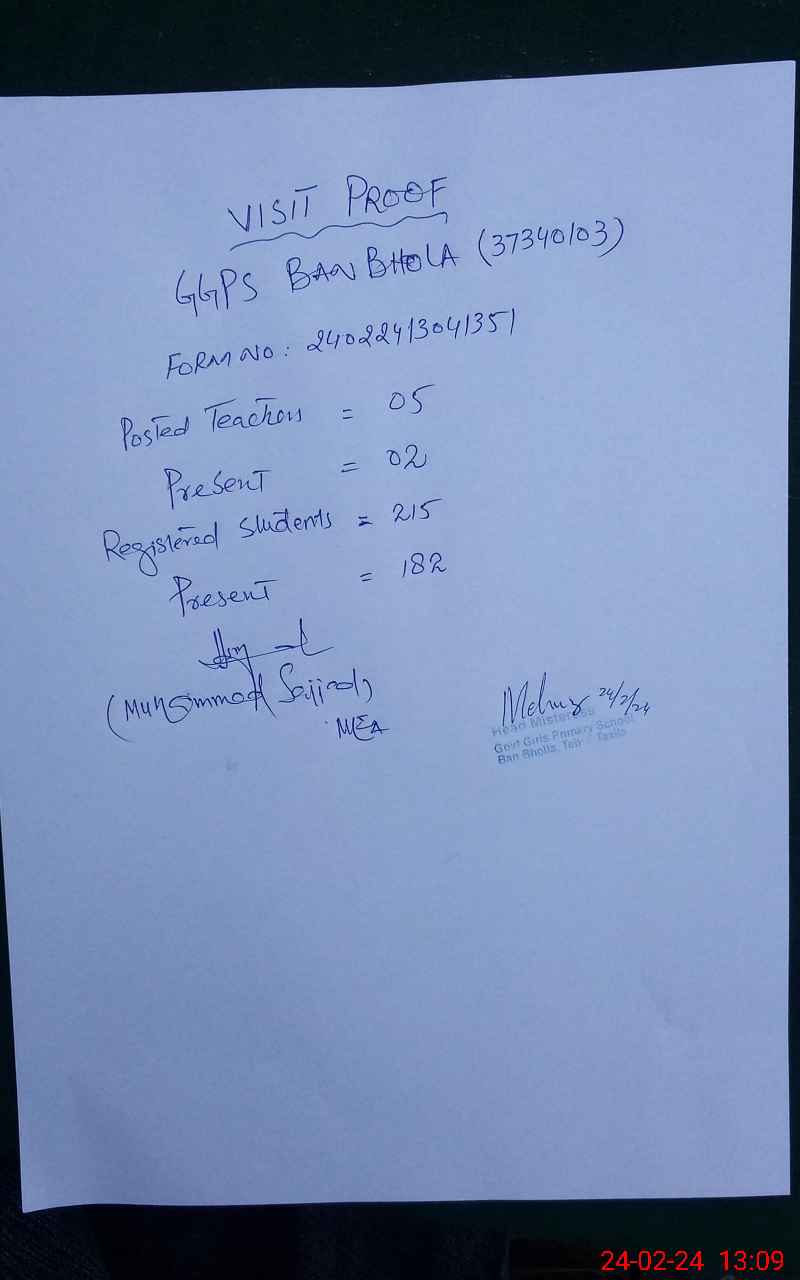 VISIT PROOF
GGPS BAN BHOLA (37340103)
FORM NO: 24022413041351
Posted Teachers = 05
Present = 02
Registered Students = 215
Present = 182
(Muhammad Sajjad)
MEA
24/2/24
Head Mistress
Govt Girls Primary School
Ban Bholla, Teh Taxila
24-02-24 13:09